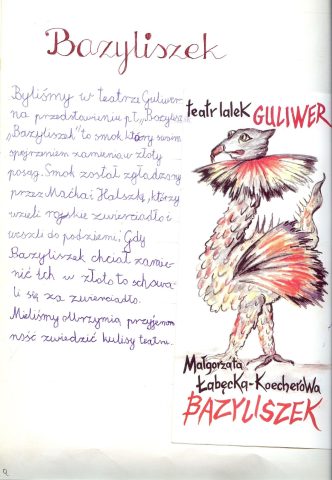 Bazyliszek
Byliśmy w teatrze Guliwer
na przedstawieniu pt. „Bazyliszek"
„Bazyliszek" to smok który swoim
spojrzeniem zamienia w złoty
posąg. Smok został zgładzony
przez Maćka i Halszkę, którzy
wzieli zwierciadło i
weszli do podziemi. Gdy
Bazyliszek chciał zamie-
nić ich w złoto to schowa-
li się za zwierciadło.
Mieliśmy olbrzymią przyjemn
ność zwiedzić kulisy teatru.
teatr lalek GULIWER
Małgorzata
Łabęcka-Koecherowa
BAZYLISZEK